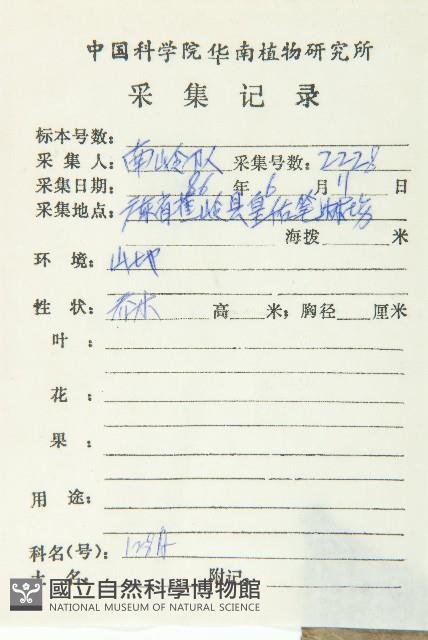 中国科学院华南植物研究所
采集记录
标本号数:
采集人: 南岭队 采集号数: 2228
采集日期: 86年6月11日
采集地点: 广东省蕉岭县皇佑笔
海拨 米
环境: 山地
性状: 乔木 高 米; 胸径 厘米
叶:
花:
果:
用途:
科名(号):
土名: 附记:
國立自然科學博物館
NATIONAL MUSEUM OF NATURAL SCIENCE